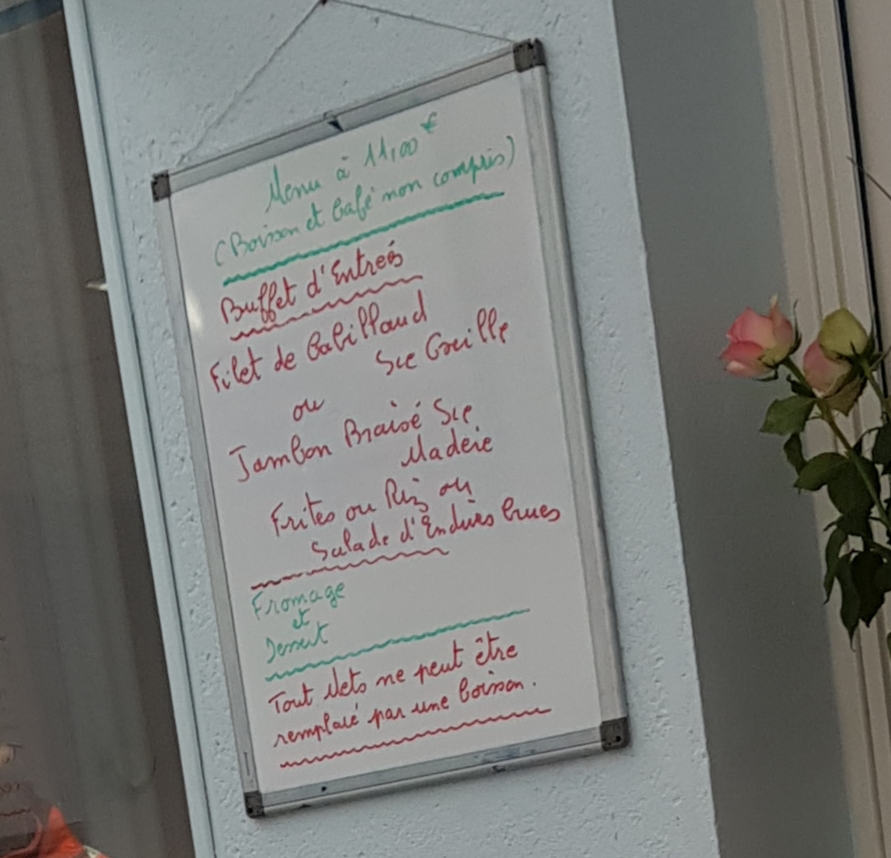 Menu à 11,00€
(Boisson et Café non compris)
Buffet d'Entreés
Filet de Cabillaud
Sce Groille
ou
Jambon Braisé Sce
Madère
Frites ou Riz ou
Salade d'Endives Crues
Fromage
et
Dessert
Tout Mets ne peut être
remplacé par une boisson.